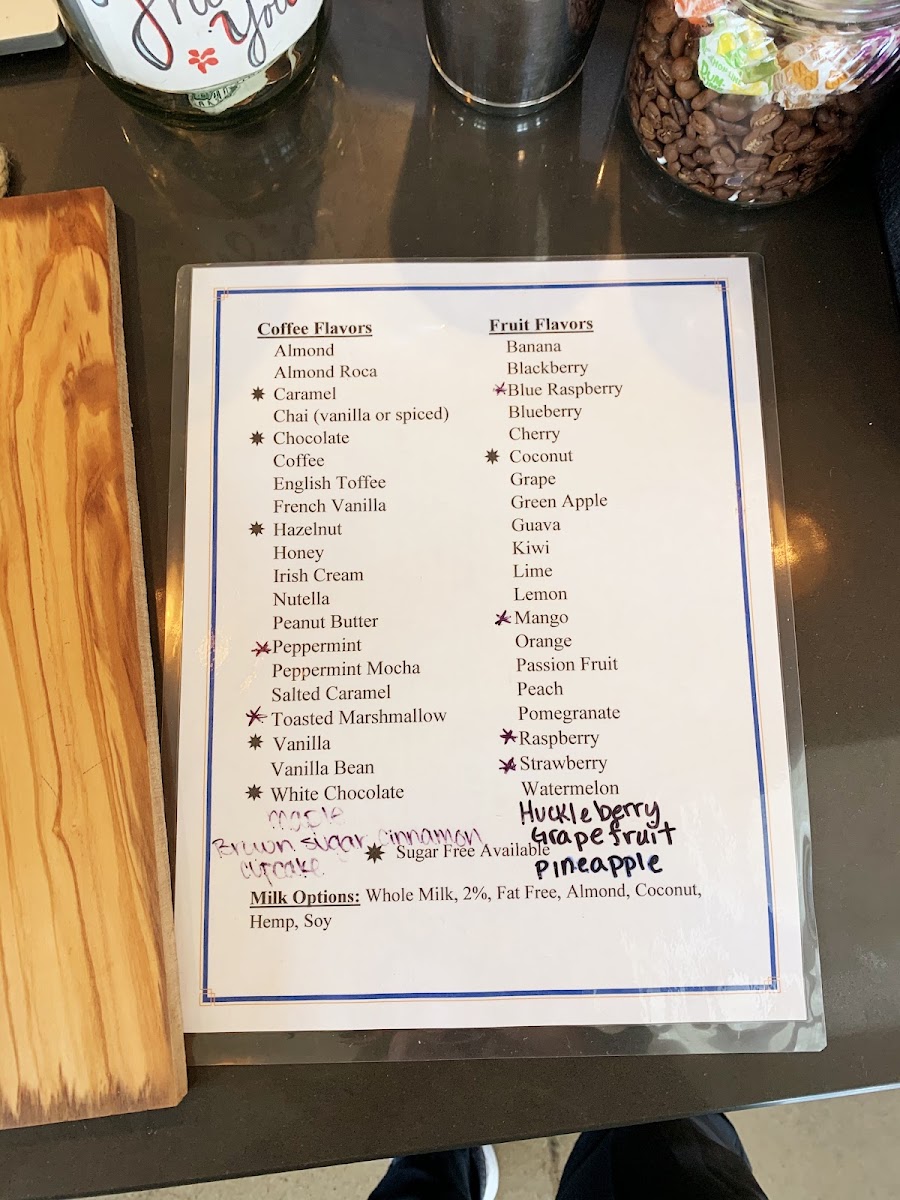 You
Coffee Flavors
Almond
Almond Roca
✷ Caramel
Chai (vanilla or spiced)
✷ Chocolate
Coffee
English Toffee
French Vanilla
✷ Hazelnut
Honey
Irish Cream
Nutella
Peanut Butter
* Peppermint
Peppermint Mocha
Salted Caramel
* Toasted Marshmallow
✷ Vanilla
Vanilla Bean
✷ White Chocolate
maple
Brown sugar cinnamon
cupcake
Fruit Flavors
Banana
Blackberry
* Blue Raspberry
Blueberry
Cherry
✷ Coconut
Grape
Green Apple
Guava
Kiwi
Lime
Lemon
* Mango
Orange
Passion Fruit
Peach
Pomegranate
* Raspberry
* Strawberry
Watermelon
Huckleberry
Grapefruit
pineapple
✷ Sugar Free Available
Milk Options: Whole Milk, 2%, Fat Free, Almond, Coconut,
Hemp, Soy